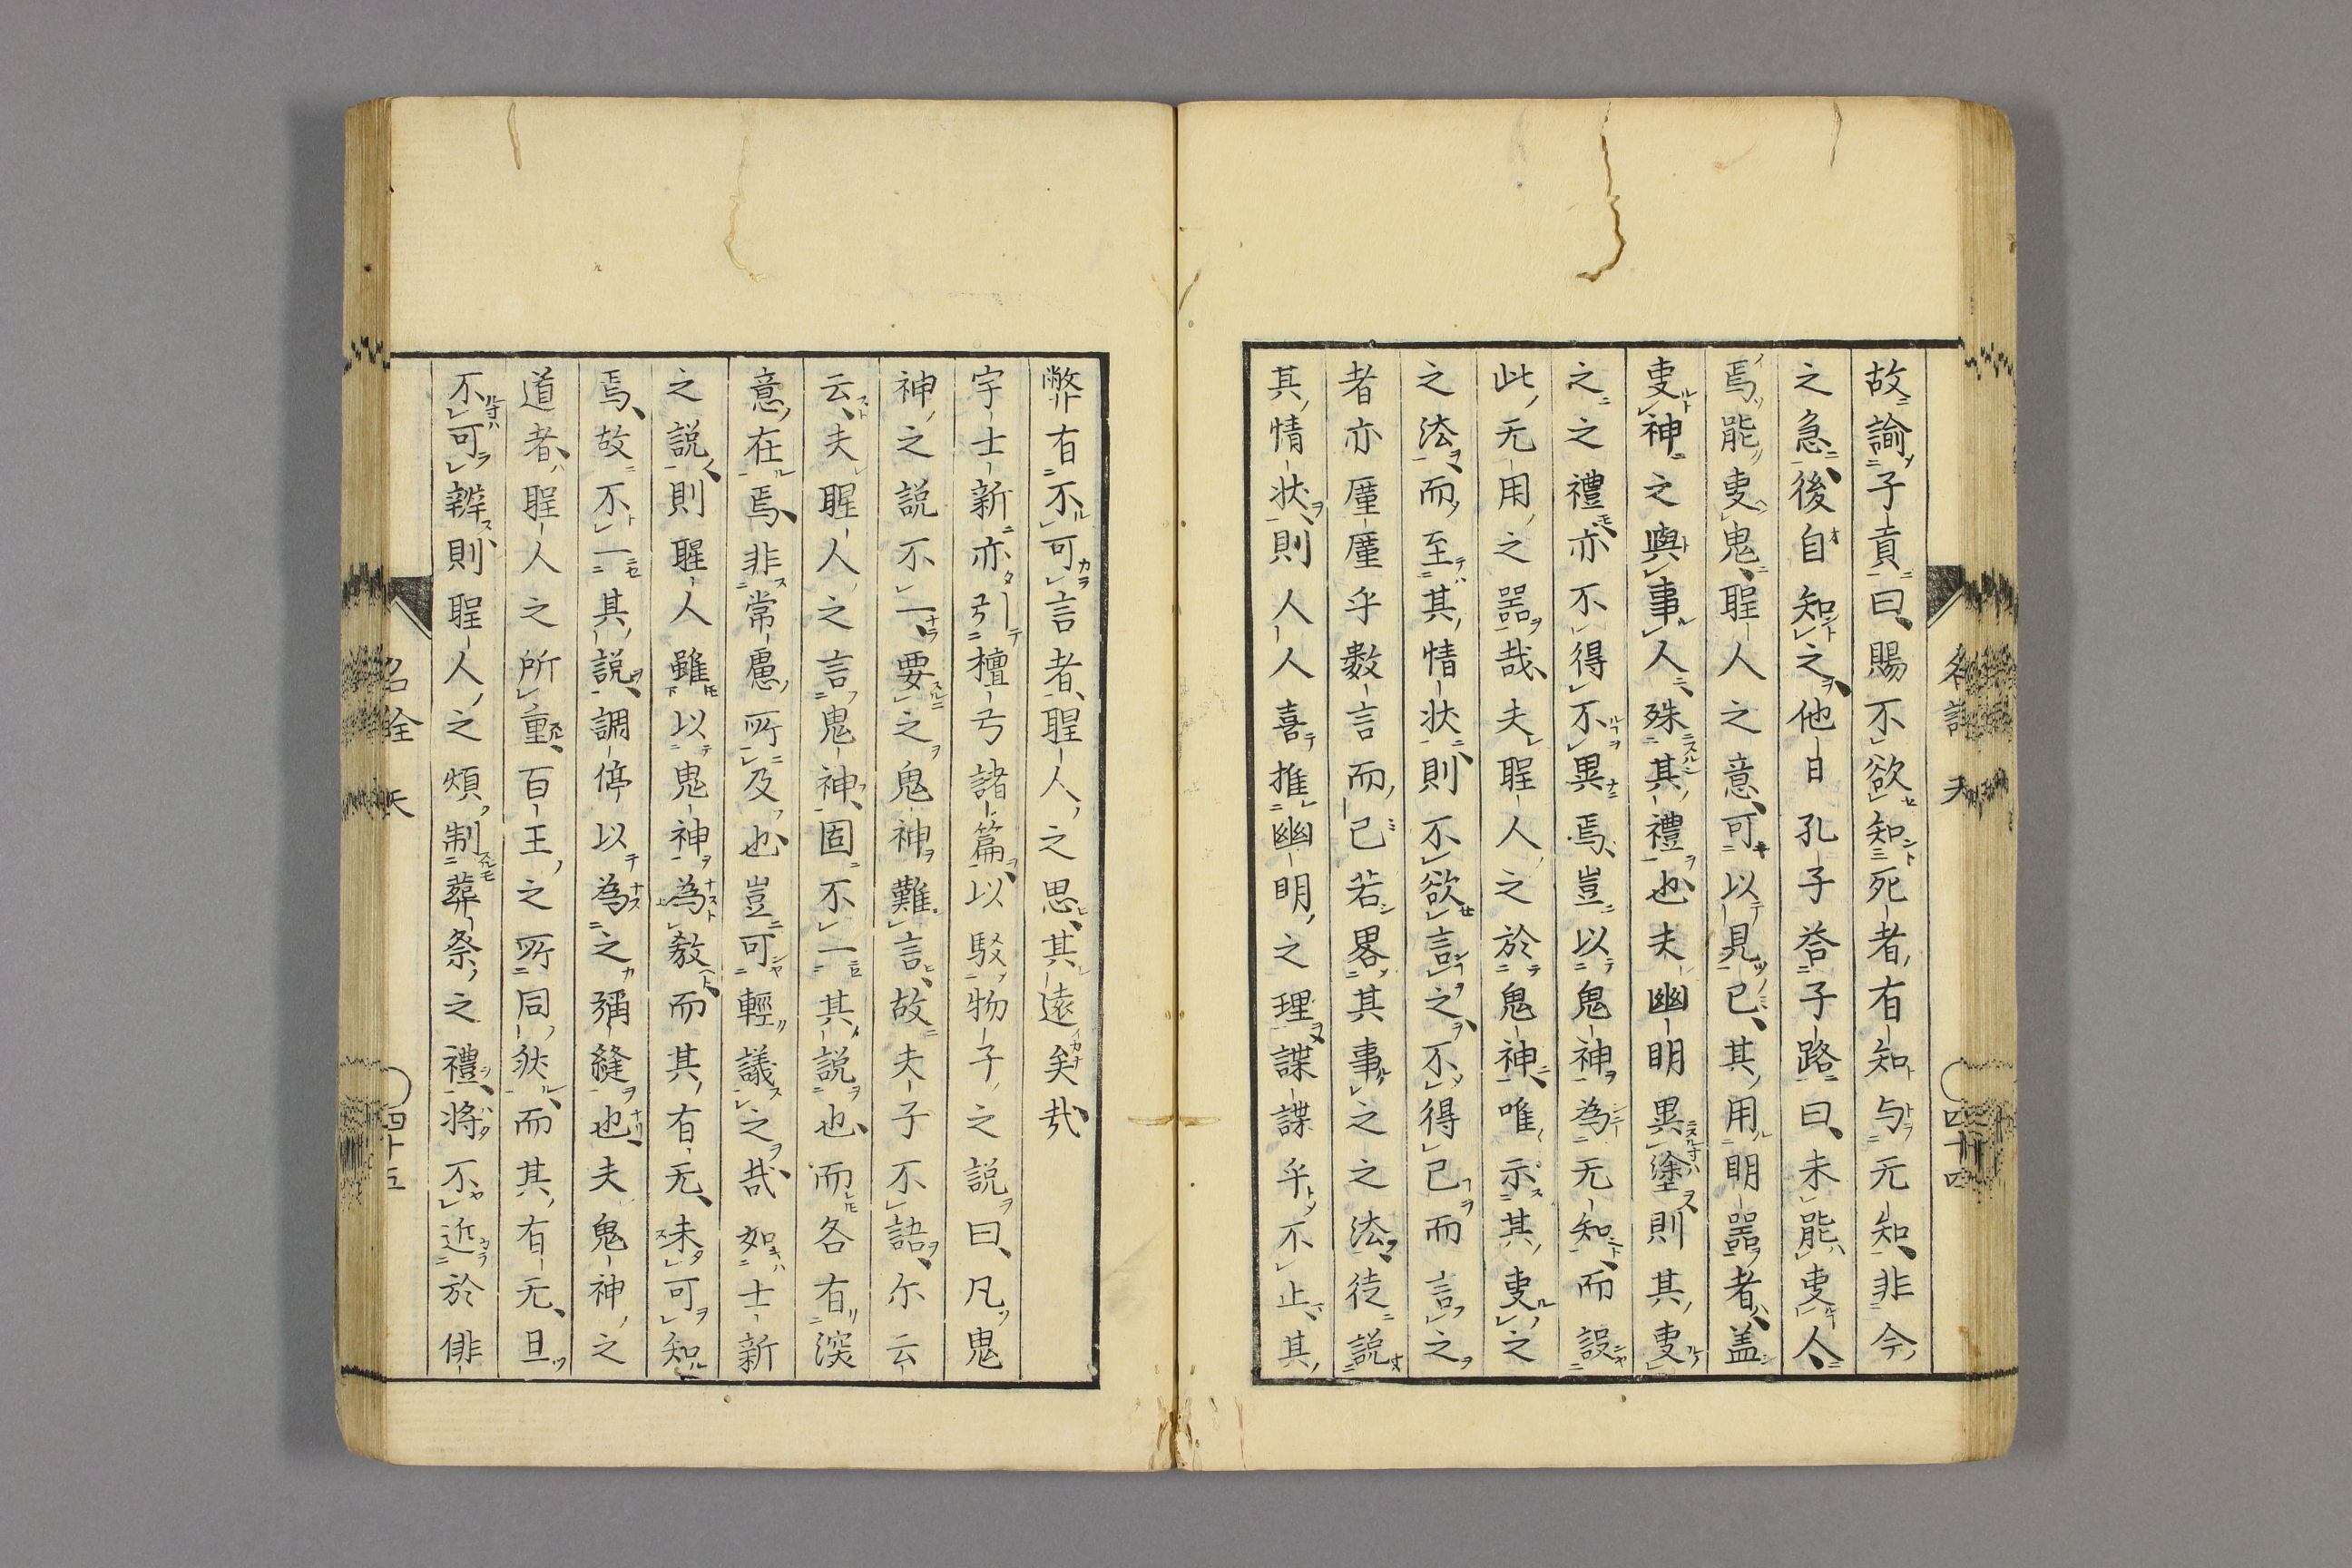 故諭子貢曰賜不欲知死者有知与无知非今
之急後自知之他日孔子荅子路曰未能叓人
焉能叓鬼聖人之意可以見已其用明噐者盖
叓神之與事人殊其禮也夫幽明異塗則其叓
之之禮亦不得不異焉豈以鬼神為无知而設
此无用之噐哉夫聖人之於鬼神唯示其叓之
之法而至其情状則不欲言之不得已而言之
者亦厪厪乎数言而已若畧其事之之法徒説
其情状則人人喜推幽明之理諜諜乎不止其
名詮 天 四十四
弊有不可言者聖人之思其遠矣哉
宇士新亦引檀弓諸篇以駁物子之説曰凡鬼
神之説不一要之鬼神難言故夫子不語尓云
云夫聖人之言鬼神固不一其説也而各有深
意在焉非常慮所及也豈可輕議之哉如士新
之説則聖人雖以鬼神為教而其有无未可知
焉故不一其説調停以為之彌縫也夫鬼神之
道者聖人之所重百王之所同然而其有无且
不可辨則聖人之煩制葬祭之禮将不近於俳
名詮 天 四十五